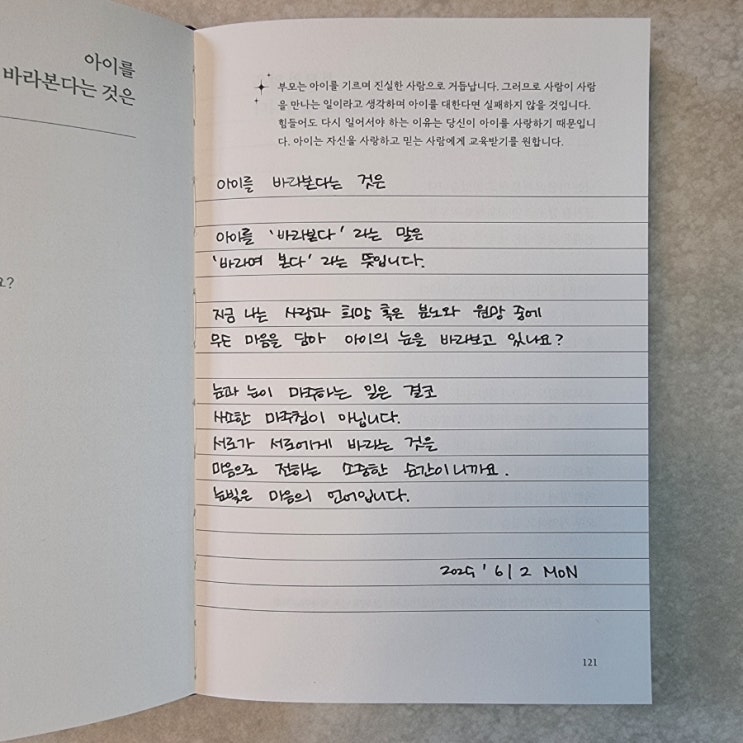 아이를
바라본다는 것은
요?
부모는 아이를 기르며 진실한 사람으로 거듭납니다. 그러므로 사람이 사람
을 만나는 일이라고 생각하며 아이를 대한다면 실패하지 않을 것입니다.
힘들어도 다시 일어서야 하는 이유는 당신이 아이를 사랑하기 때문입니
다. 아이는 자신을 사랑하고 믿는 사람에게 교육받기를 원합니다.
아이를 바라본다는 것은
아이를 '바라본다' 라는 말은
'바라며 본다' 라는 뜻입니다.
지금 나는 사랑과 희망 혹은 분노와 원망 중에
무슨 마음을 담아 아이의 눈을 바라보고 있나요?
눈과 눈이 마주하는 일은 결코
사소한 마주침이 아닙니다.
서로가 서로에게 바라는 것은
마음으로 전하는 소중한 순간이니까요.
눈빛은 마음의 언어입니다.
2025' 6/2 MON
121